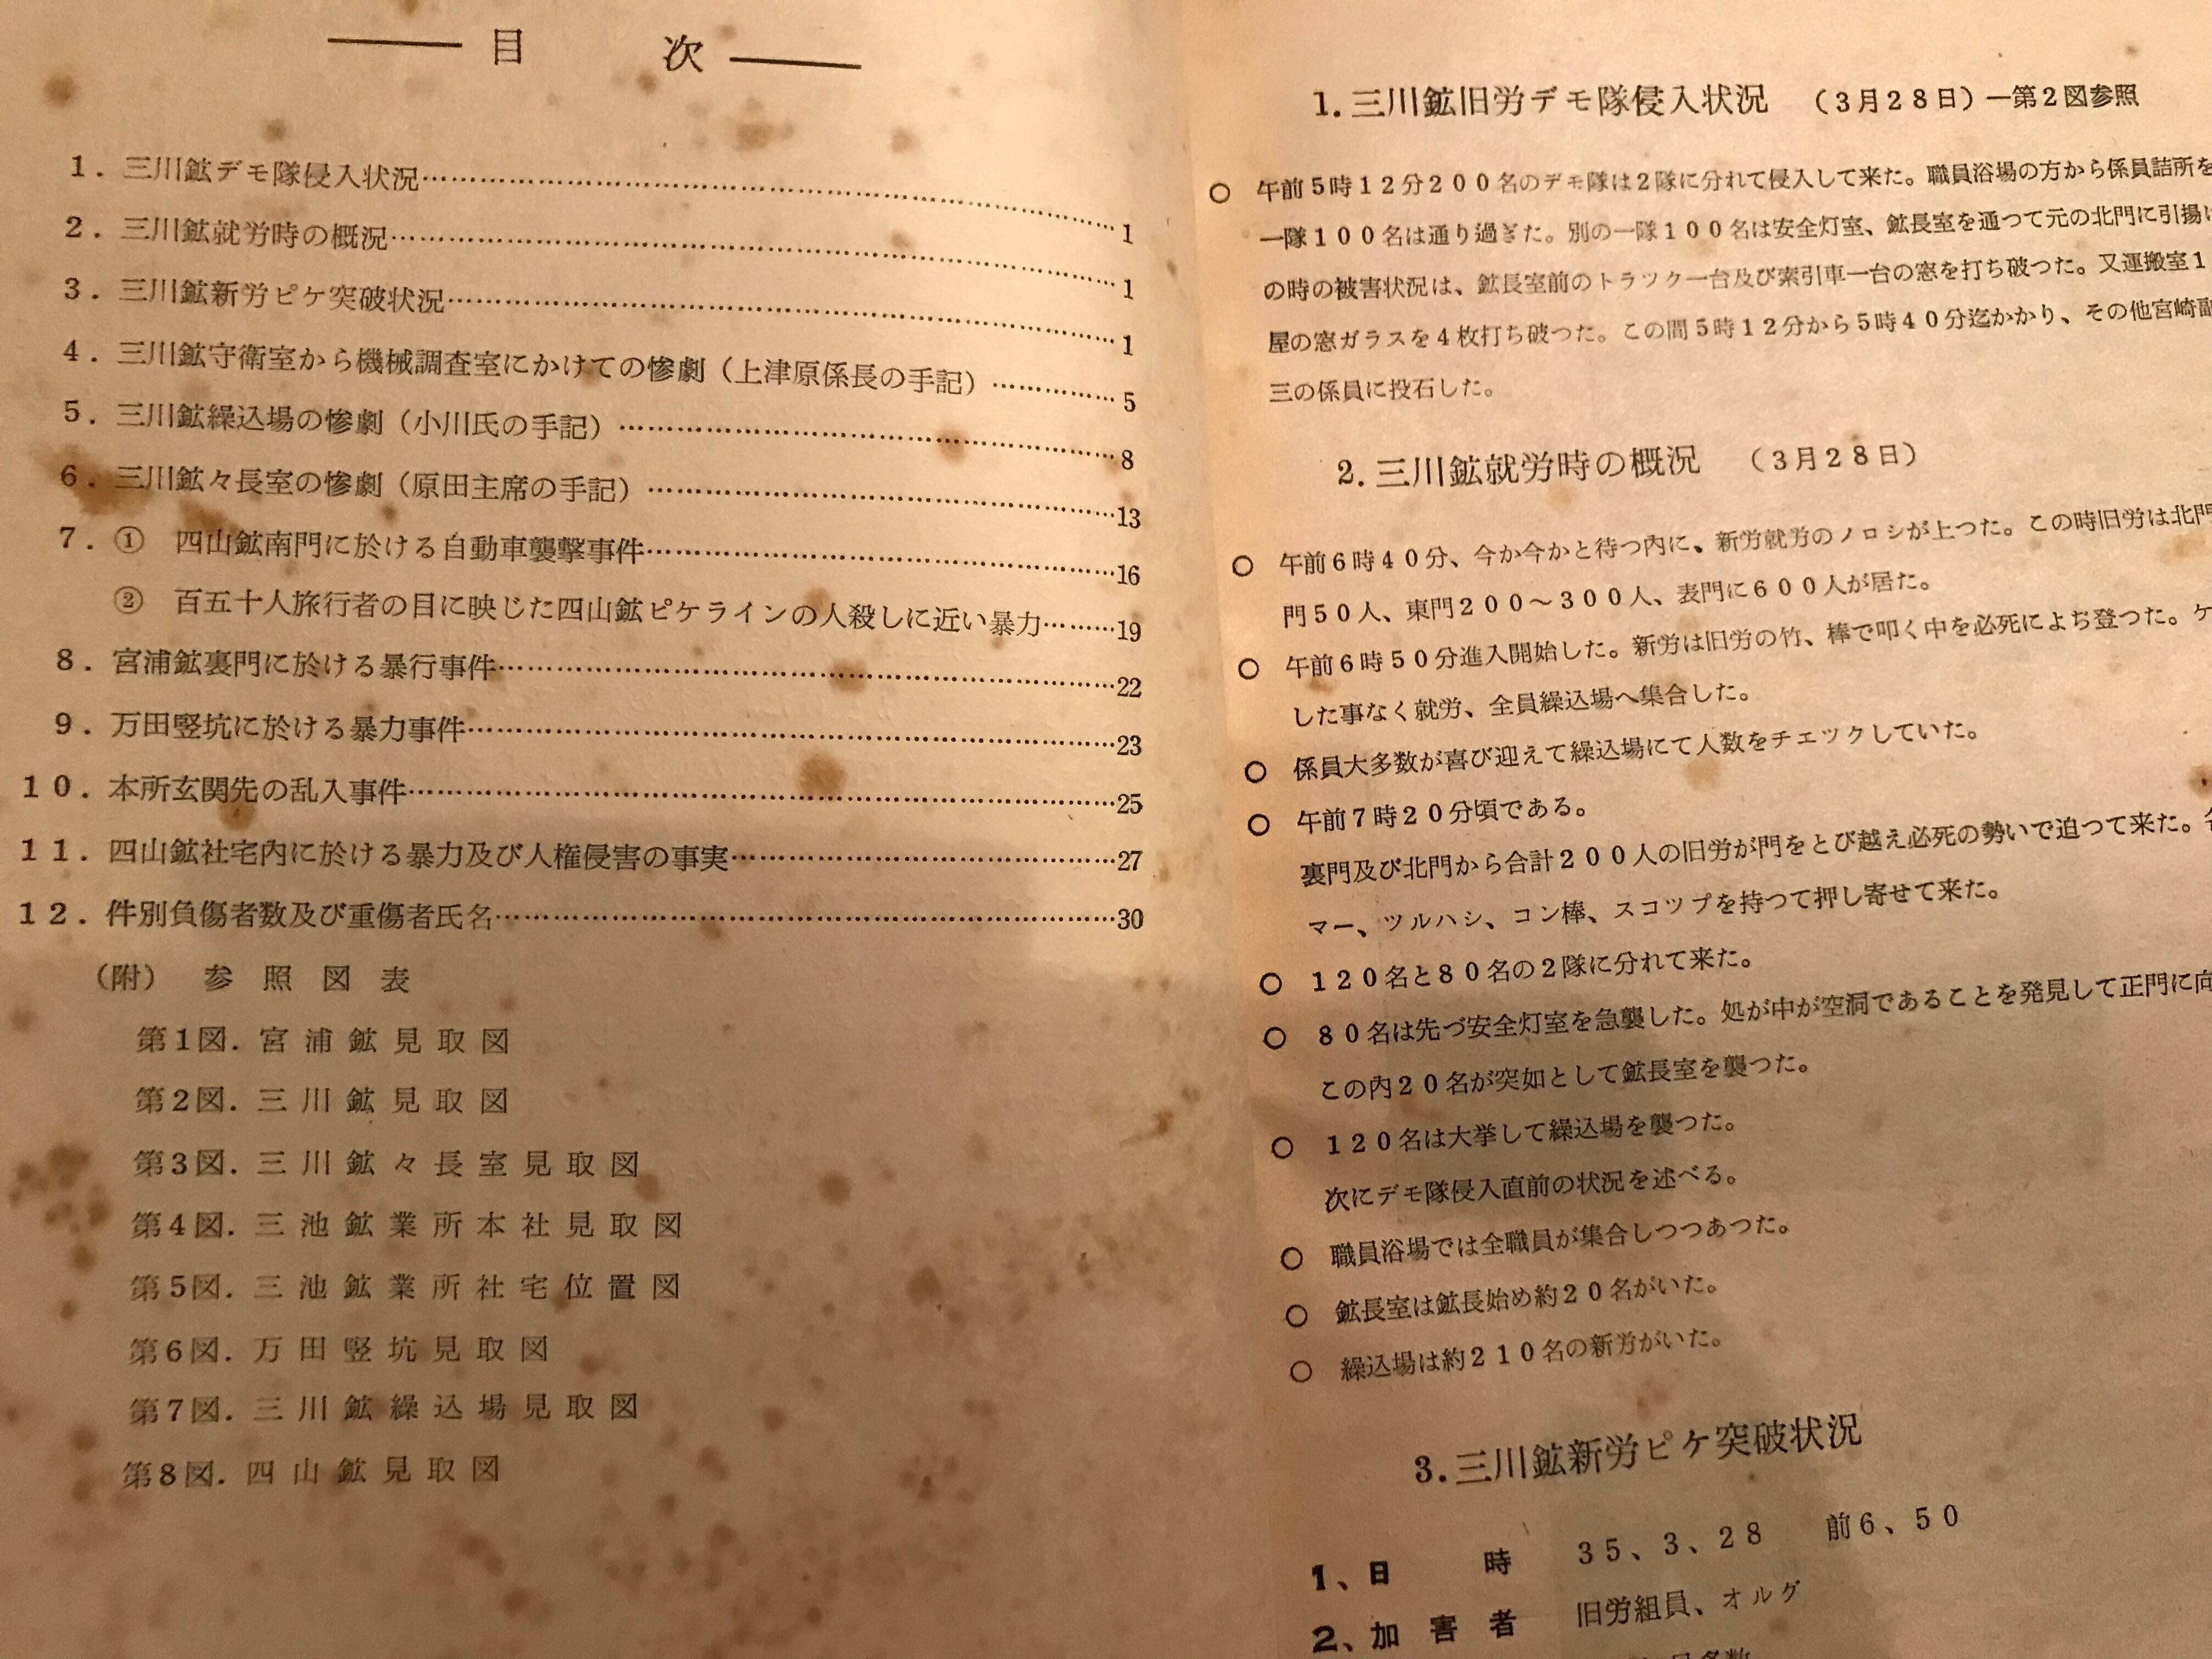 目 次
1. 三川鉱デモ隊侵入状況……1
2. 三川鉱就労時の概況……1
3. 三川鉱新労ピケ突破状況……1
4. 三川鉱守衛室から機械調査室にかけての惨劇(上津原係長の手記)……5
5. 三川鉱繰込場の惨劇(小川氏の手記)……8
6. 三川鉱々長室の惨劇(原田主席の手記)……13
7. ① 四山鉱南門に於ける自動車襲撃事件……16
② 百五十人旅行者の目に映じた四山鉱ピケラインの人殺しに近い暴力……19
8. 宮浦鉱裏門に於ける暴行事件……22
9. 万田竪坑に於ける暴力事件……23
10. 本所玄関先の乱入事件……25
11. 四山鉱社宅内に於ける暴力及び人権侵害の事実……27
12. 件別負傷者数及び重傷者氏名……30
(附) 参照図表
第1図. 宮浦鉱見取図
第2図. 三川鉱見取図
第3図. 三川鉱々長室見取図
第4図. 三池鉱業所本社見取図
第5図. 三池鉱業所社宅位置図
第6図. 万田竪坑見取図
第7図. 三川鉱繰込場見取図
第8図. 四山鉱見取図
1. 三川鉱旧労デモ隊侵入状況 (3月28日)―第2図参照
○ 午前5時12分200名のデモ隊は2隊に分れて侵入して来た。職員浴場の方から係員詰所を
一隊100名は通り過ぎた。別の一隊100名は安全灯室、鉱長室を通つて元の北門に引揚
の時の被害状況は、鉱長室前のトラック一台及び索引車一台の窓を打ち破つた。又運搬室1
屋の窓ガラスを4枚打ち破つた。この間5時12分から5時40分迄かかり、その他宮崎副
三の係員に投石した。
2. 三川鉱就労時の概況 (3月28日)
○ 午前6時40分、今か今かと待つ内に、新労就労のノロシが上つた。この時旧労は北門
門50人、東門200～300人、表門に600人が居た。
○ 午前6時50分進入開始した。新労は旧労の竹、棒で叩く中を必死によぢ登つた。ケ
した事なく就労、全員繰込場へ集合した。
○ 係員大多数が喜び迎えて繰込場にて人数をチエツクしていた。
○ 午前7時20分頃である。
裏門及び北門から合計200人の旧労が門をとび越え必死の勢いで迫つて来た。
マー、ツルハシ、コン棒、スコツプを持つて押し寄せて来た。
○ 120名と80名の2隊に分れて来た。
○ 80名は先づ安全灯室を急襲した。処が中が空洞であることを発見して正門に向
この内20名が突如として鉱長室を襲つた。
○ 120名は大挙して繰込場を襲つた。
次にデモ隊侵入直前の状況を述べる。
○ 職員浴場では全職員が集合しつつあつた。
○ 鉱長室は鉱長始め約20名がいた。
○ 繰込場は約210名の新労がいた。
3. 三川鉱新労ピケ突破状況
1、日 時 35、3、28 前6、50
2、加害者 旧労組員、オルグ